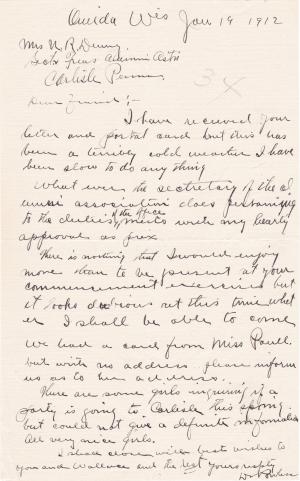 Oneida Wis Jan 19 1912
Mrs N. R. Denny
Sec'tr Treas Alumni Ass'n
Carlisle Penna
34
Dear Friend:-
I have received your
letter and postal card but this has
been a terribly cold weather I have
been slow to do any thing
What ever the secretary of the al
umni association does pertaining
to the duties of the office meets with my hearty
approval as prex.
There is nothing that I would enjoy
more than to be present at your
commencement exercises but
it looks dubious at this time wheth
er I shall be able to come
We had a card from Miss Paull
but with no address. please inform
us as to her address.
There are some girls inquiring if a
party is going to Carlisle this spring
but could not give a definite information
All very nice girls.
I shall close with best wishes to
you and Wallace and the rest yours respty